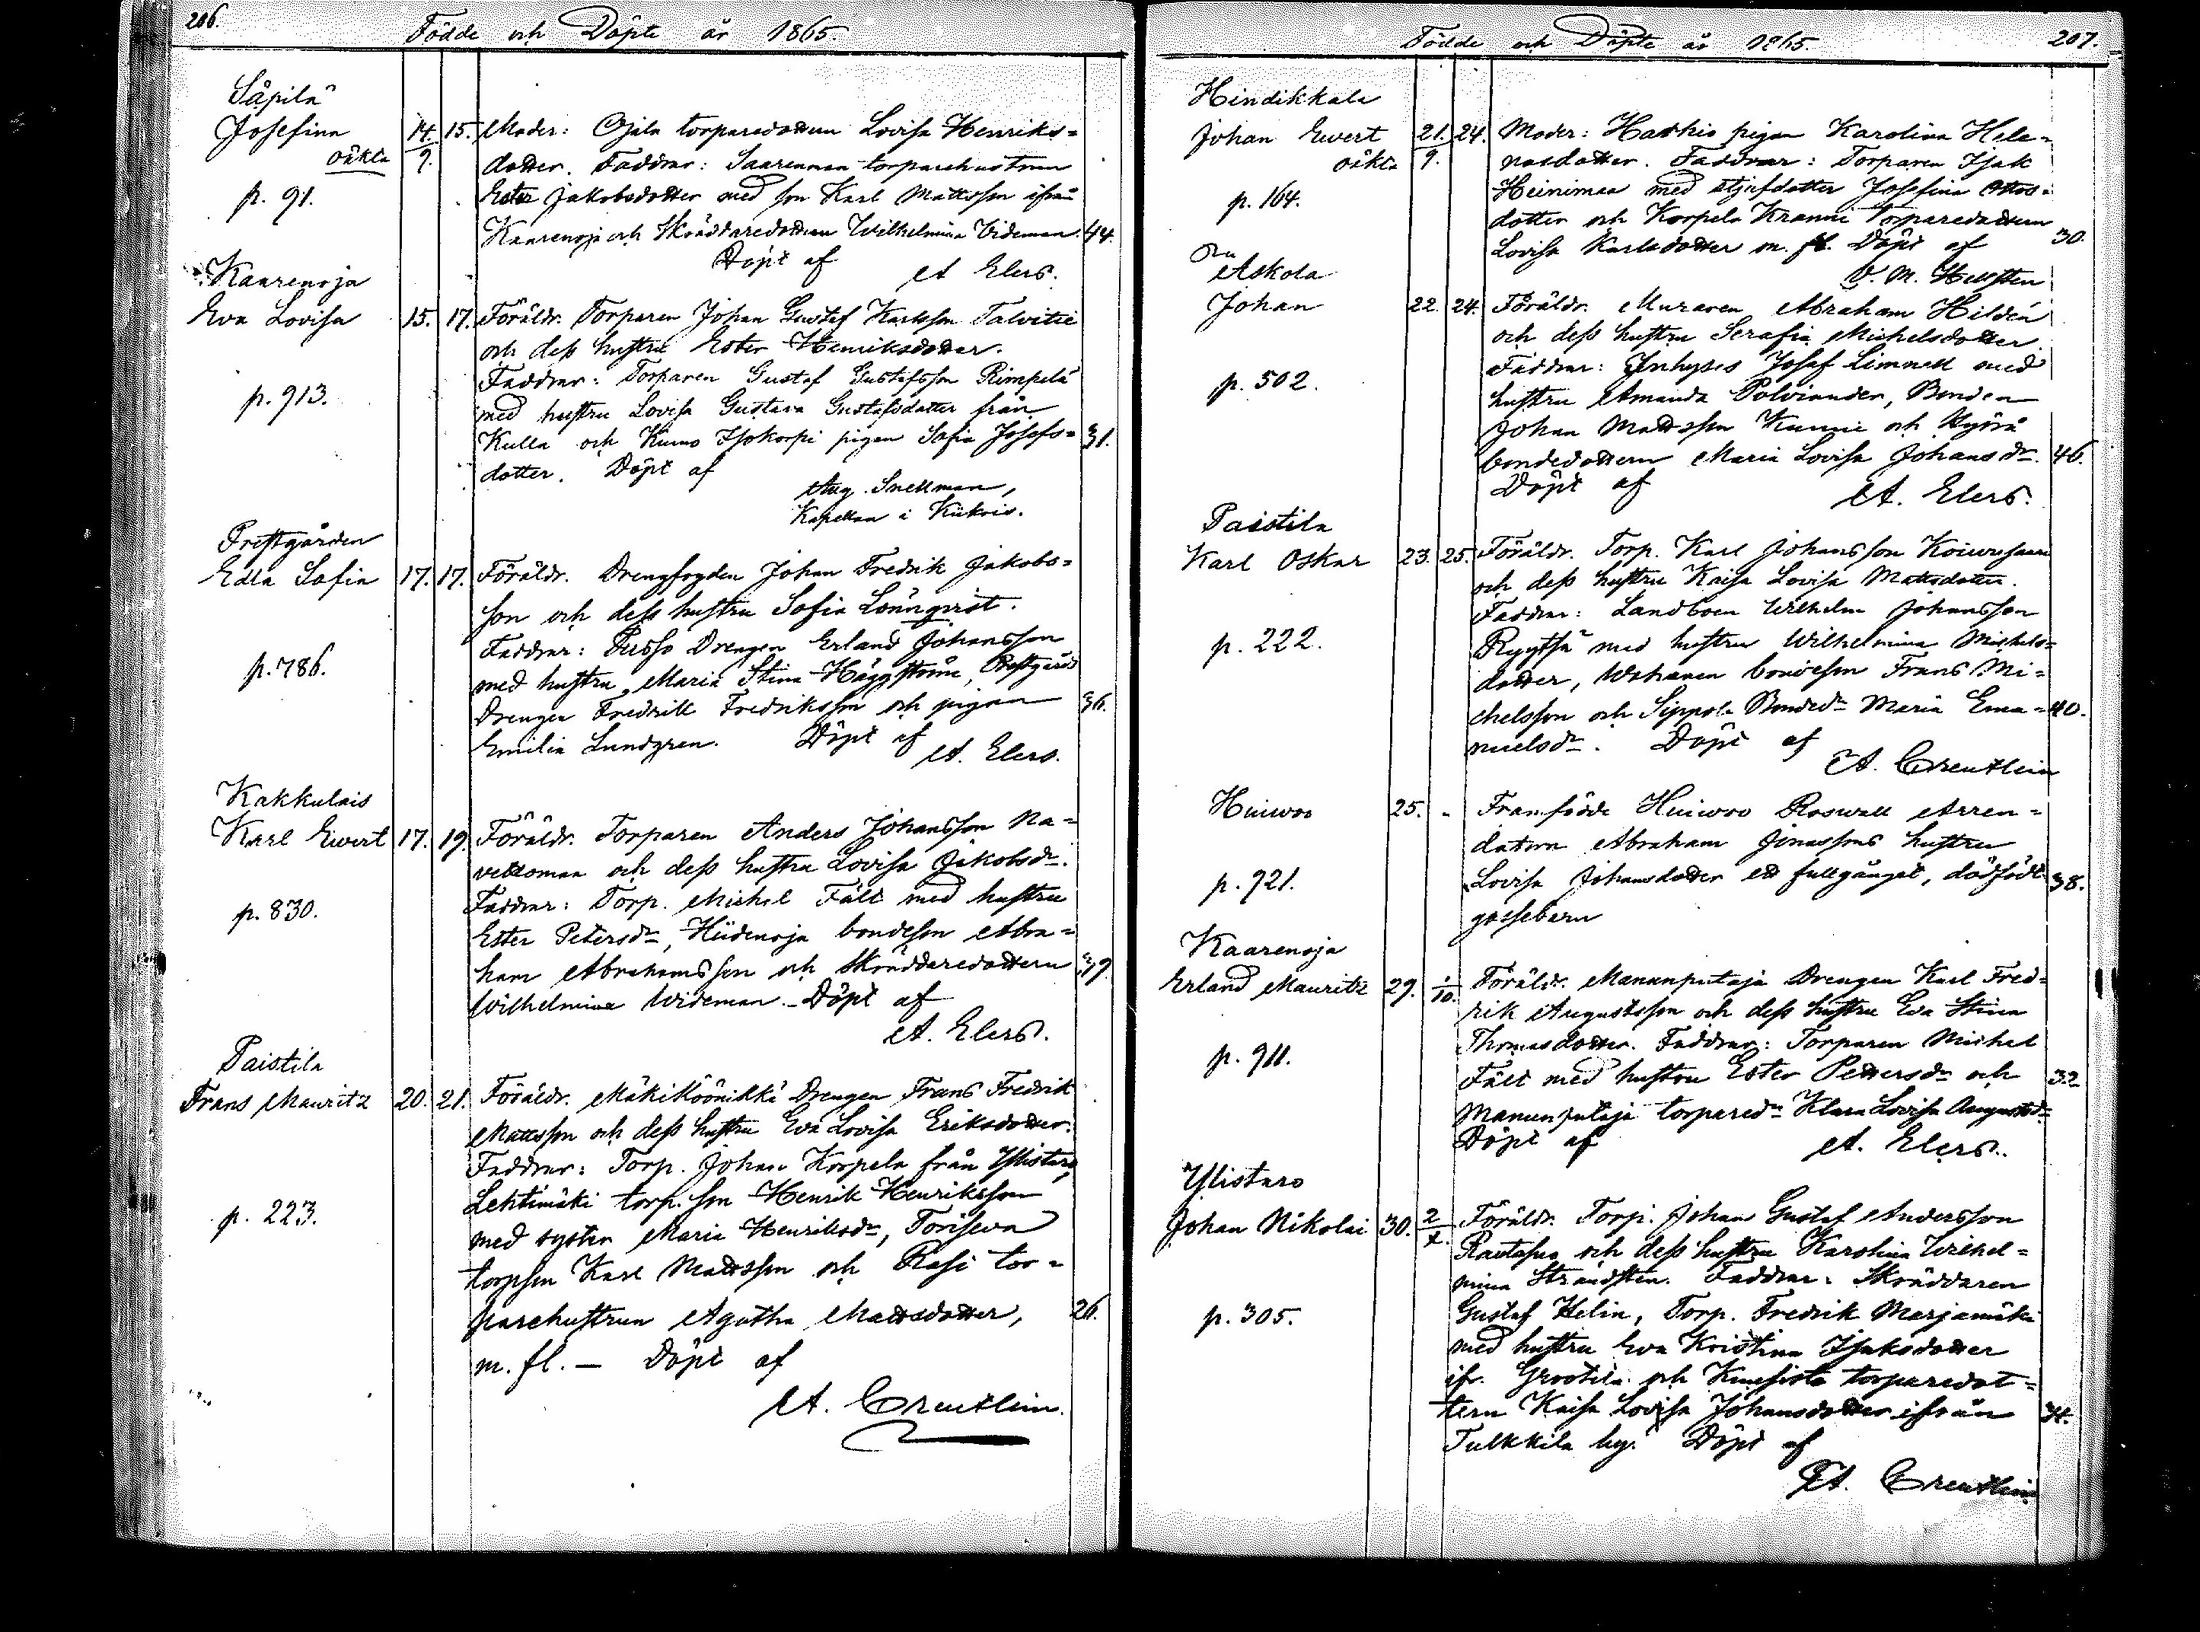 206.
Födde och Döpte år 1865.
Såpilä
Josefina
oäkta
p. 91.
14. 15.
9.
Moder: Ojala torparedottern Lovisa Henriks=
dotter. Faddrar: Saarenmaa torparehustrun
Ester Jakobsdotter med son Karl Mattsson ifrån
Kaarenoja och Skräddaredottern Wilhelmina Videman. 44.
Döpt af
A Elers.
Kaarenoja
Eva Lovisa 15. 17.
p. 913.
Föräldr. Torparen Johan Gustaf Karlsson Talvitie
och dess hustru Ester Henriksdotter.
Faddrar: Torparen Gustaf Gustafsson Rimpelä
med hustru Lovisa Gustava Gustafsdotter från
Kulla och Kumo Isokorpi pigan Sofia Josefs= 31.
dotter. Döpt af
Aug. Snellman,
Kapellan i Kiikois.
Prestgården
Edla Sofia 17. 17.
p. 786.
Föräldr. Drengfogden Johan Fredrik Jakobs=
son och dess hustru Sofia Lönnqvist.
Faddrar: Pusso Drengen Erland Johansson
med hustru Maria Stina Häggström, Prestgårds
Drengen Fredrik Fredriksson och pigan 36.
Emilia Lundgren. Döpt af
A. Elers.
Kakkulais
Karl Ewert 17. 19.
p. 830.
Föräldr. Torparen Anders Johansson Na=
vettomaa och dess hustru Lovisa Jakobsdr.
Faddrar: Torp. Michel Fält med hustru
Ester Petersdr, Hiidenoja bondeson Abra=
ham Abrahamsson och Skräddaredottern 39.
Wilhelmina Wideman. Döpt af
A. Elers.
Paistila
Frans Mauritz 20. 21.
p. 223.
Föräldr. Mäkiköönikkä Drengen Frans Fredrik
Mattsson och dess hustru Eva Lovisa Eriksdotter.
Faddrar: Torp. Johan Korpela från Ylistaro,
Lehtimäki torp. son Henrik Henriksson
med syster Maria Henriksdr,
torpson Karl Mattsson och Rasi tor=
parehustrun Agatha Mattsdotter, 26.
m. fl. — Döpt af
A. Creutlein.
Födde och Döpte år 1865.
207.
Hindikkala
Johan Ewert 21. 24.
oäkta 9.
p. 164.
Moder: Harkio pigan Karolina Hele=
nasdotter. Faddrar: Torparen Isak
Heinimaa med stjufdotter Josefina Ottos=
dotter och Korpela Kranni torparedottern 30.
Lovisa Karlsdotter m. fl. Döpt af
V. M. Hellsten
Askola
Johan 22. 24.
p. 502.
Föräldr. Muraren Abraham Hildén
och dess hustru Serafia Michelsdotter
Faddrar: Inhyses Josef Limnell med
hustru Amanda Polviander, Bonden
Johan Mattsson Kunni och Kyörä
bondedottern Maria Lovisa Johansdr. 46.
Döpt af
A. Elers.
Paistila
Karl Oskar 23. 25.
p. 222.
Föräldr. Torp. Karl Johansson Koivusaari
och dess hustru Kaisa Lovisa Mattsdotter.
Faddrar: Landboen Wilhelm Johansson
med hustru Wilhelmina Michels=
dotter, Wahanen bondeson Frans Mi=
chelsson och Sippola Bondedr Maria Ema= 40.
nuelsdr. Döpt af
A. Creutlein
Huiwoo 25. -
p. 921.
Framfödde Huiwoo Roswall Arren=
datorn Abraham Jonassons hustru
Lovisa Johansdotter ett fullgånget, dödfödt 38.
gossebarn
Kaarenoja
Erland Mauritz 29. 1/10.
p. 911.
Föräldr. Manunputaja Drengen Karl Fred=
rik Augustsson och dess hustru Eva Stina
Thomasdotter. Faddrar: Torparen Michel
Fält med hustru Ester Pettersdr och 32
Manunputaja torparedr Klara Lovisa Augustsdr
Döpt af A. Elers.
Ylistaro
Johan Nikolai 30. 2/X.
p. 305.
Föräldr. Torp. Johan Gustaf Andersson
Rautasuo och dess hustru Karolina Wilhel=
mina Strandstén. Faddrar: Skräddaren
Gustaf Helin, Torp. Fredrik Marjamäki
med hustru Eva Kristina Isaksdotter
ifr. Grootila och Kinfisto torparedot=
tern Kaisa Lovisa Johansdotter ifrån 34.
Tulkkila by. Döpt af
A. Creutlein